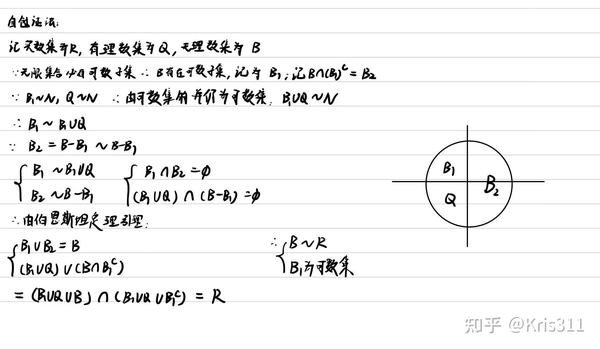 自创证法:
记实数集为R, 有理数集为Q, 无理数集为 B
∵无限集合必有可数子集 ∴ B存在可数子集, 记为 B₁; 记B∩(B₁)ᶜ = B₂
∵ B₁~N, Q~N ∴由可数集的并仍为可数集, B₁∪Q ~N
∴ B₁ ~ B₁∪Q
∵ B₂ = B-B₁ ~ B-B₁
{ B₁ ~B₁∪Q { B₁∩B₂=∅
B₂ ~B-B₁ (B₁∪Q)∩(B-B₁)=∅
∴由伯恩斯坦定理引理:
{ B₁∪B₂=B ∴ { B~R
(B₁∪Q)∪(B∩B₁ᶜ) B₁为可数集
= (B₁∪Q∪B)∩(B₁∪Q∪B₁ᶜ) = R
B₁
Q
B₂
知乎 @Kris311